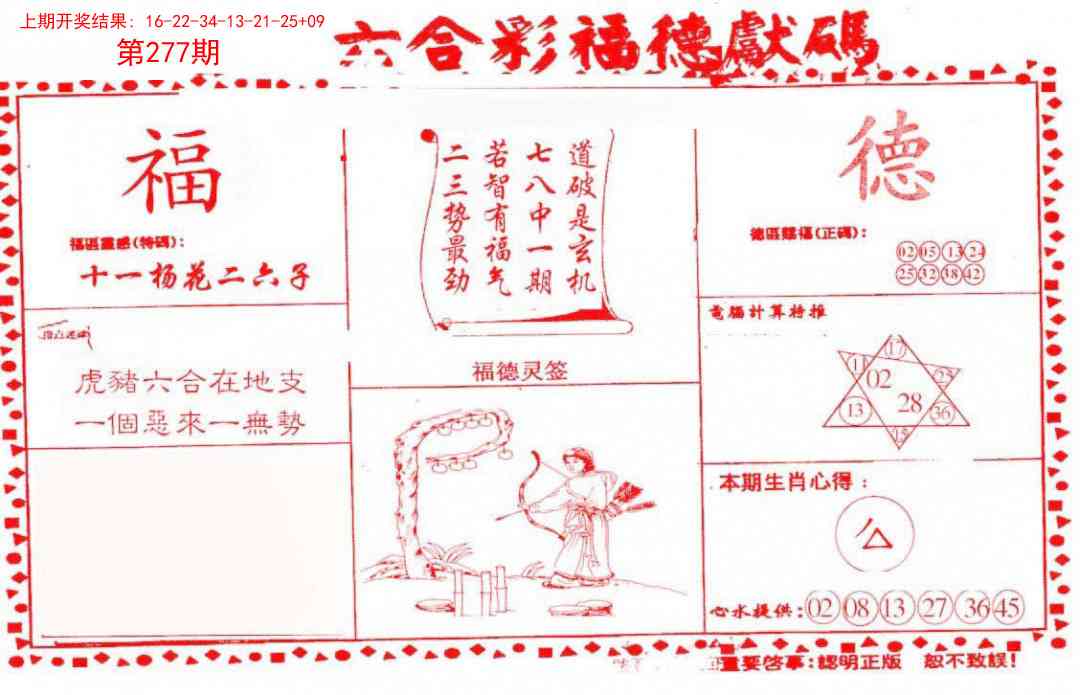 上期开奖结果: 16-22-34-13-21-25+09
第277期
六合彩福德獻碼
福
福區靈感(特碼):
十一杨花二六子
道破是玄机
七八中一期
若智有福气
二三势最劲
福德灵签
德
德區賜福(正碼):
02 05 13 24
25 32 38 42
虎豬六合在地支
一個惡來一無勢
電腦計算特推
17
11
02
13
28
36
15
本期生肖心得:
心水提供: 02 08 13 27 36 45
重要啓事:認明正版 恕不致誤!